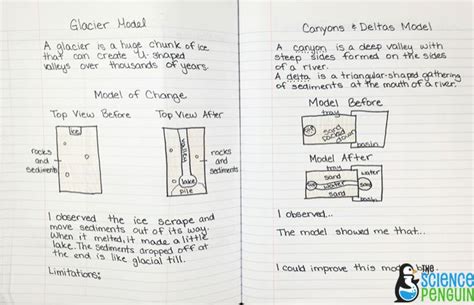 Glacier Model
A glacier is a huge chunk of ice
that can create U-shaped
valleys over thousands of years.
Model of Change
Top View Before
Top View After
ice
rocks
and
sediments
valley
lake
pile
rocks
and
sediments
I observed the ice scrape and
move sediments out of its way.
When it melted, it made a little
lake. The sediments dropped off at
the end is like glacial till.
Limitations:
Canyons & Deltas Model
A canyon is a deep valley with
steep sides formed on the sides
of a river.
A delta is a triangular-shaped gathering
of sediments at the mouth of a river.
Model Before
tray
sand
packed
down
basin
Model After
tray
sand
water
water
sand
sand
basin
I observed...
The model showed me that...
I could improve this model by...
THE
SCIENCE
PENGUIN